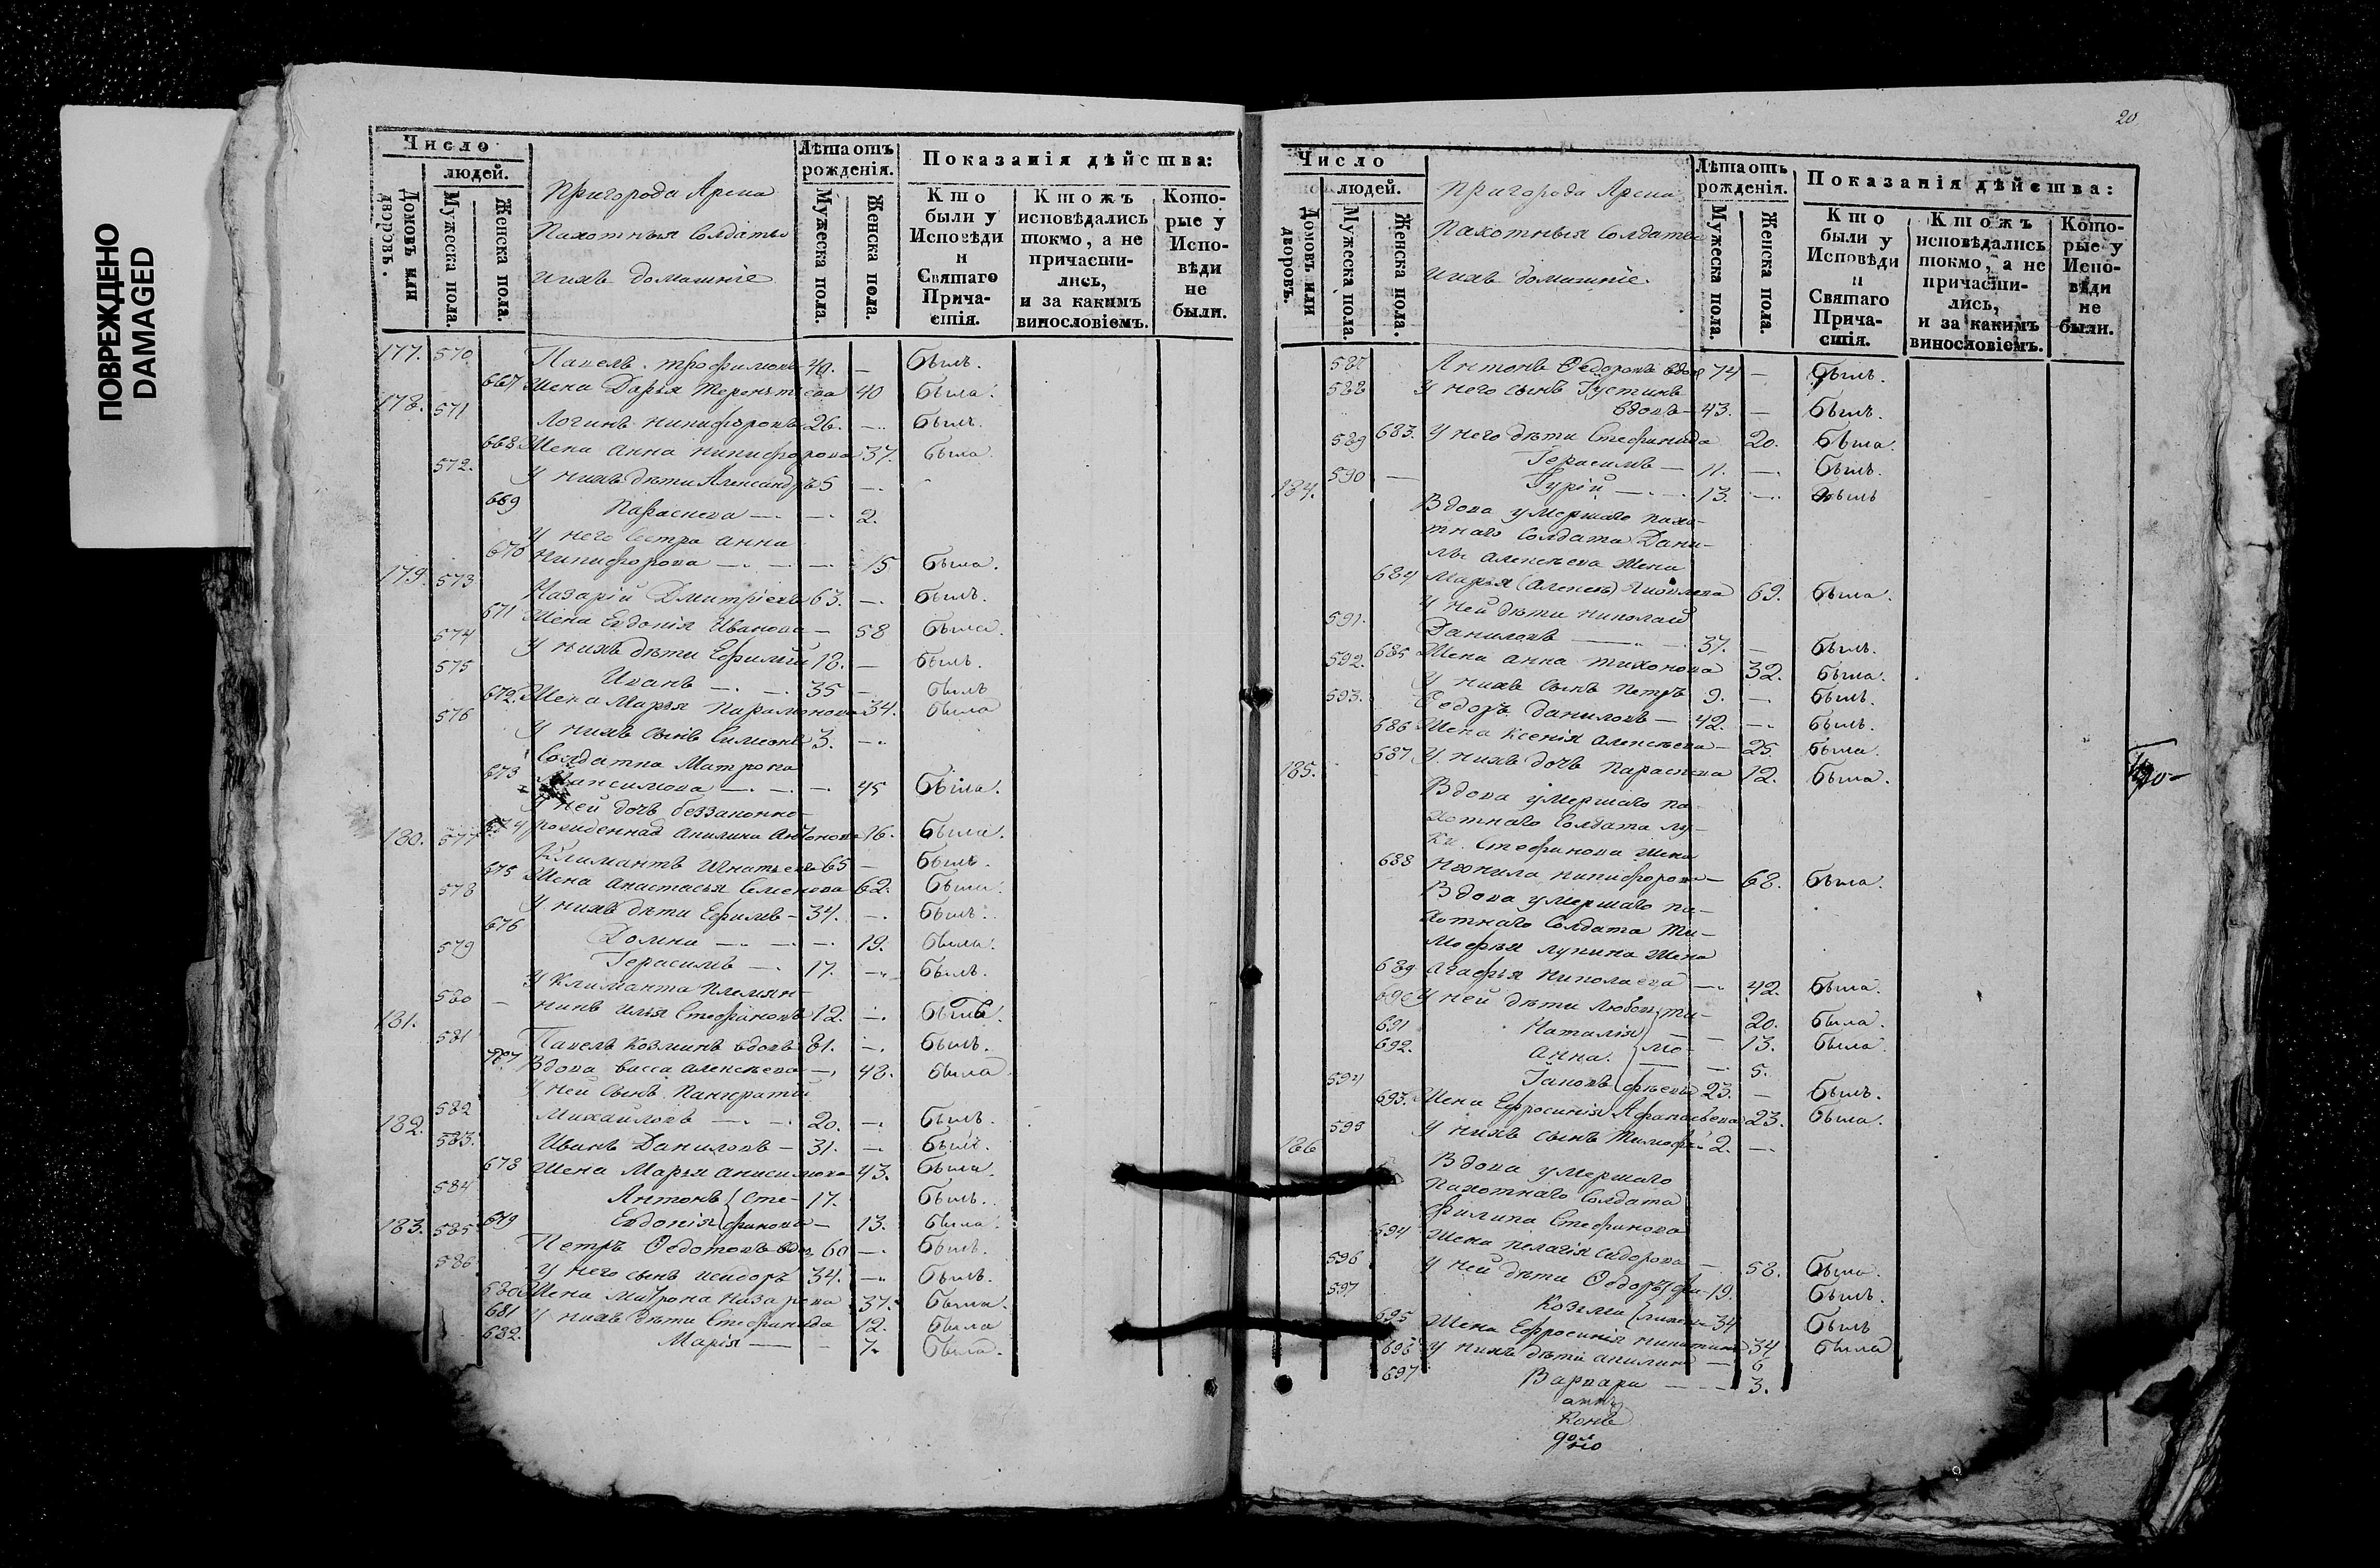 ПОВРЕЖДЕНО
DAMAGED
Число
людей.
Домовъ или дворовъ.
Мужеска пола.
Женска пола.
Пригорода Арска
Пахотныя Солдаты
и ихъ домашніе
Лѣта отъ рожденія.
Мужеска пола.
Женска пола.
Показанія дѣйства:
Кто были у Исповѣди и Святаго Причастія.
Ктожъ исповѣдались токмо, а не причастились, и за какимъ винословіемъ.
Которые у Исповѣди не были.
177. 570. Павелъ Трофимовъ 49. — былъ.
667 Жена Дарья Терентьева 40 была.
178. 571 Логинъ Никифоровъ 26. — былъ.
668 Жена Анна Никифорова 37. была.
572. У нихъ дѣти Александръ 5 —
669 Параскева — — 2.
У него Сестра Анна
670 Никифорова — — — 15 была.
179. 573 Назарій Дмитріевъ 63. — былъ.
671 Жена Евдокія Иванова — 58 была.
574 У нихъ дѣти Ефимій 18. — былъ.
575 Иванъ — — 35 — былъ
672. Жена Марья Парамонова 34. была
576 У нихъ сынъ Симеонъ 3. —
Солдатка Матрона
673 Максимова — — — 45 была.
У ней дочь беззаконно-
674 рожденная Акилина Антонова 16. была.
180. 577 Климантъ Игнатьевъ 65 — былъ.
675 Жена Анастасья Семенова 62. была.
578 У нихъ дѣти Ефимъ — 34. — былъ.
676 Домна — — — 19. была.
579 Герасимъ — 17. — былъ.
У Климанта племян-
580 — никъ Илья Стефановъ 12. — былъ.
181. 581 Павелъ Козминъ вдовъ 81. — былъ.
Вдова Васса Алексѣева — 48. была
У ней сынъ Панкратій
582 Михайловъ — — 20. — былъ.
182. 583. Иванъ Даниловъ — 31. — былъ.
678 Жена Марья Анисимова 43. была.
584 Антонъ { Сте- 17. былъ.
679 Евдокія { фановы — 13. была.
183. 585 Петръ Ѳедотовъ вдов 60 — былъ.
586. У него сынъ Исидоръ 34. — былъ.
680 Жена Матрона Назарова 37. была.
681 У нихъ дѣти Стефанида 12. была
682. Марія — — 7. была.
20
Число
людей.
Домовъ или дворовъ.
Мужеска пола.
Женска пола.
Пригорода Арска
Пахотныя Солдаты
и ихъ домашніе.
Лѣта отъ рожденія.
Мужеска пола.
Женска пола.
Показанія дѣйства:
Кто были у Исповѣди и Святаго Причастія.
Ктожъ исповѣдались токмо, а не причастились, и за какимъ винословіемъ.
Которые у Исповѣди не были.
587 Антонъ Ѳедоровъ вдов 74 — былъ.
588 У него сынъ Іустинъ
вдовъ — 43. — былъ.
683. У него дѣти Стефанида 20. была.
589 Герасимъ — 11. — былъ.
590 — Гурій — — 13. — былъ
184. Вдова умершаго пахо-
тнаго Солдата Дани-
лы Алексѣева Жена
684 Марья (Алексѣ) Яковлева 69. была.
У ней дѣти Николай
591. Даниловъ — — 37. — былъ.
685 Жена Анна Тихонова 32. была.
592. У нихъ сынъ Петръ 9. — былъ.
593. Ѳедоръ Даниловъ — 42. — былъ.
686 Жена Ксенія Алексѣева — 25. была.
687 У нихъ дочь Параскева 12. была.
185. Вдова умершаго па-
хотнаго Солдата Лу-
ки Стефанова Жена
688 Неонила Никифорова — 68. была.
Вдова умершаго па-
хотнаго Солдата Ти-
мофѣя Лукина Жена
689 Агафья Николаева — 42. была.
690 У ней дѣти Любовь } ти- 20. была.
691 Наталія } — 13. была.
692. Анна. } мо- — 5.
594 Іаковъ } фѣевы 23. — былъ.
693. Жена Ефросинія Афанасьева 23. была.
595 У нихъ сынъ Тимофей 2. —
186 Вдова умершаго
Пахотнаго Солдата
Филипа Стефанова
694 Жена Пелагія Сидорова — 58. была.
596 У ней дѣти Ѳедоръ } фи- 19. былъ.
597 Козьма } липовы 34 былъ
695 Жена Ефросинія Никитина 34 была
696 У нихъ дѣти Акилина — 6
697 Варвара — — 3.